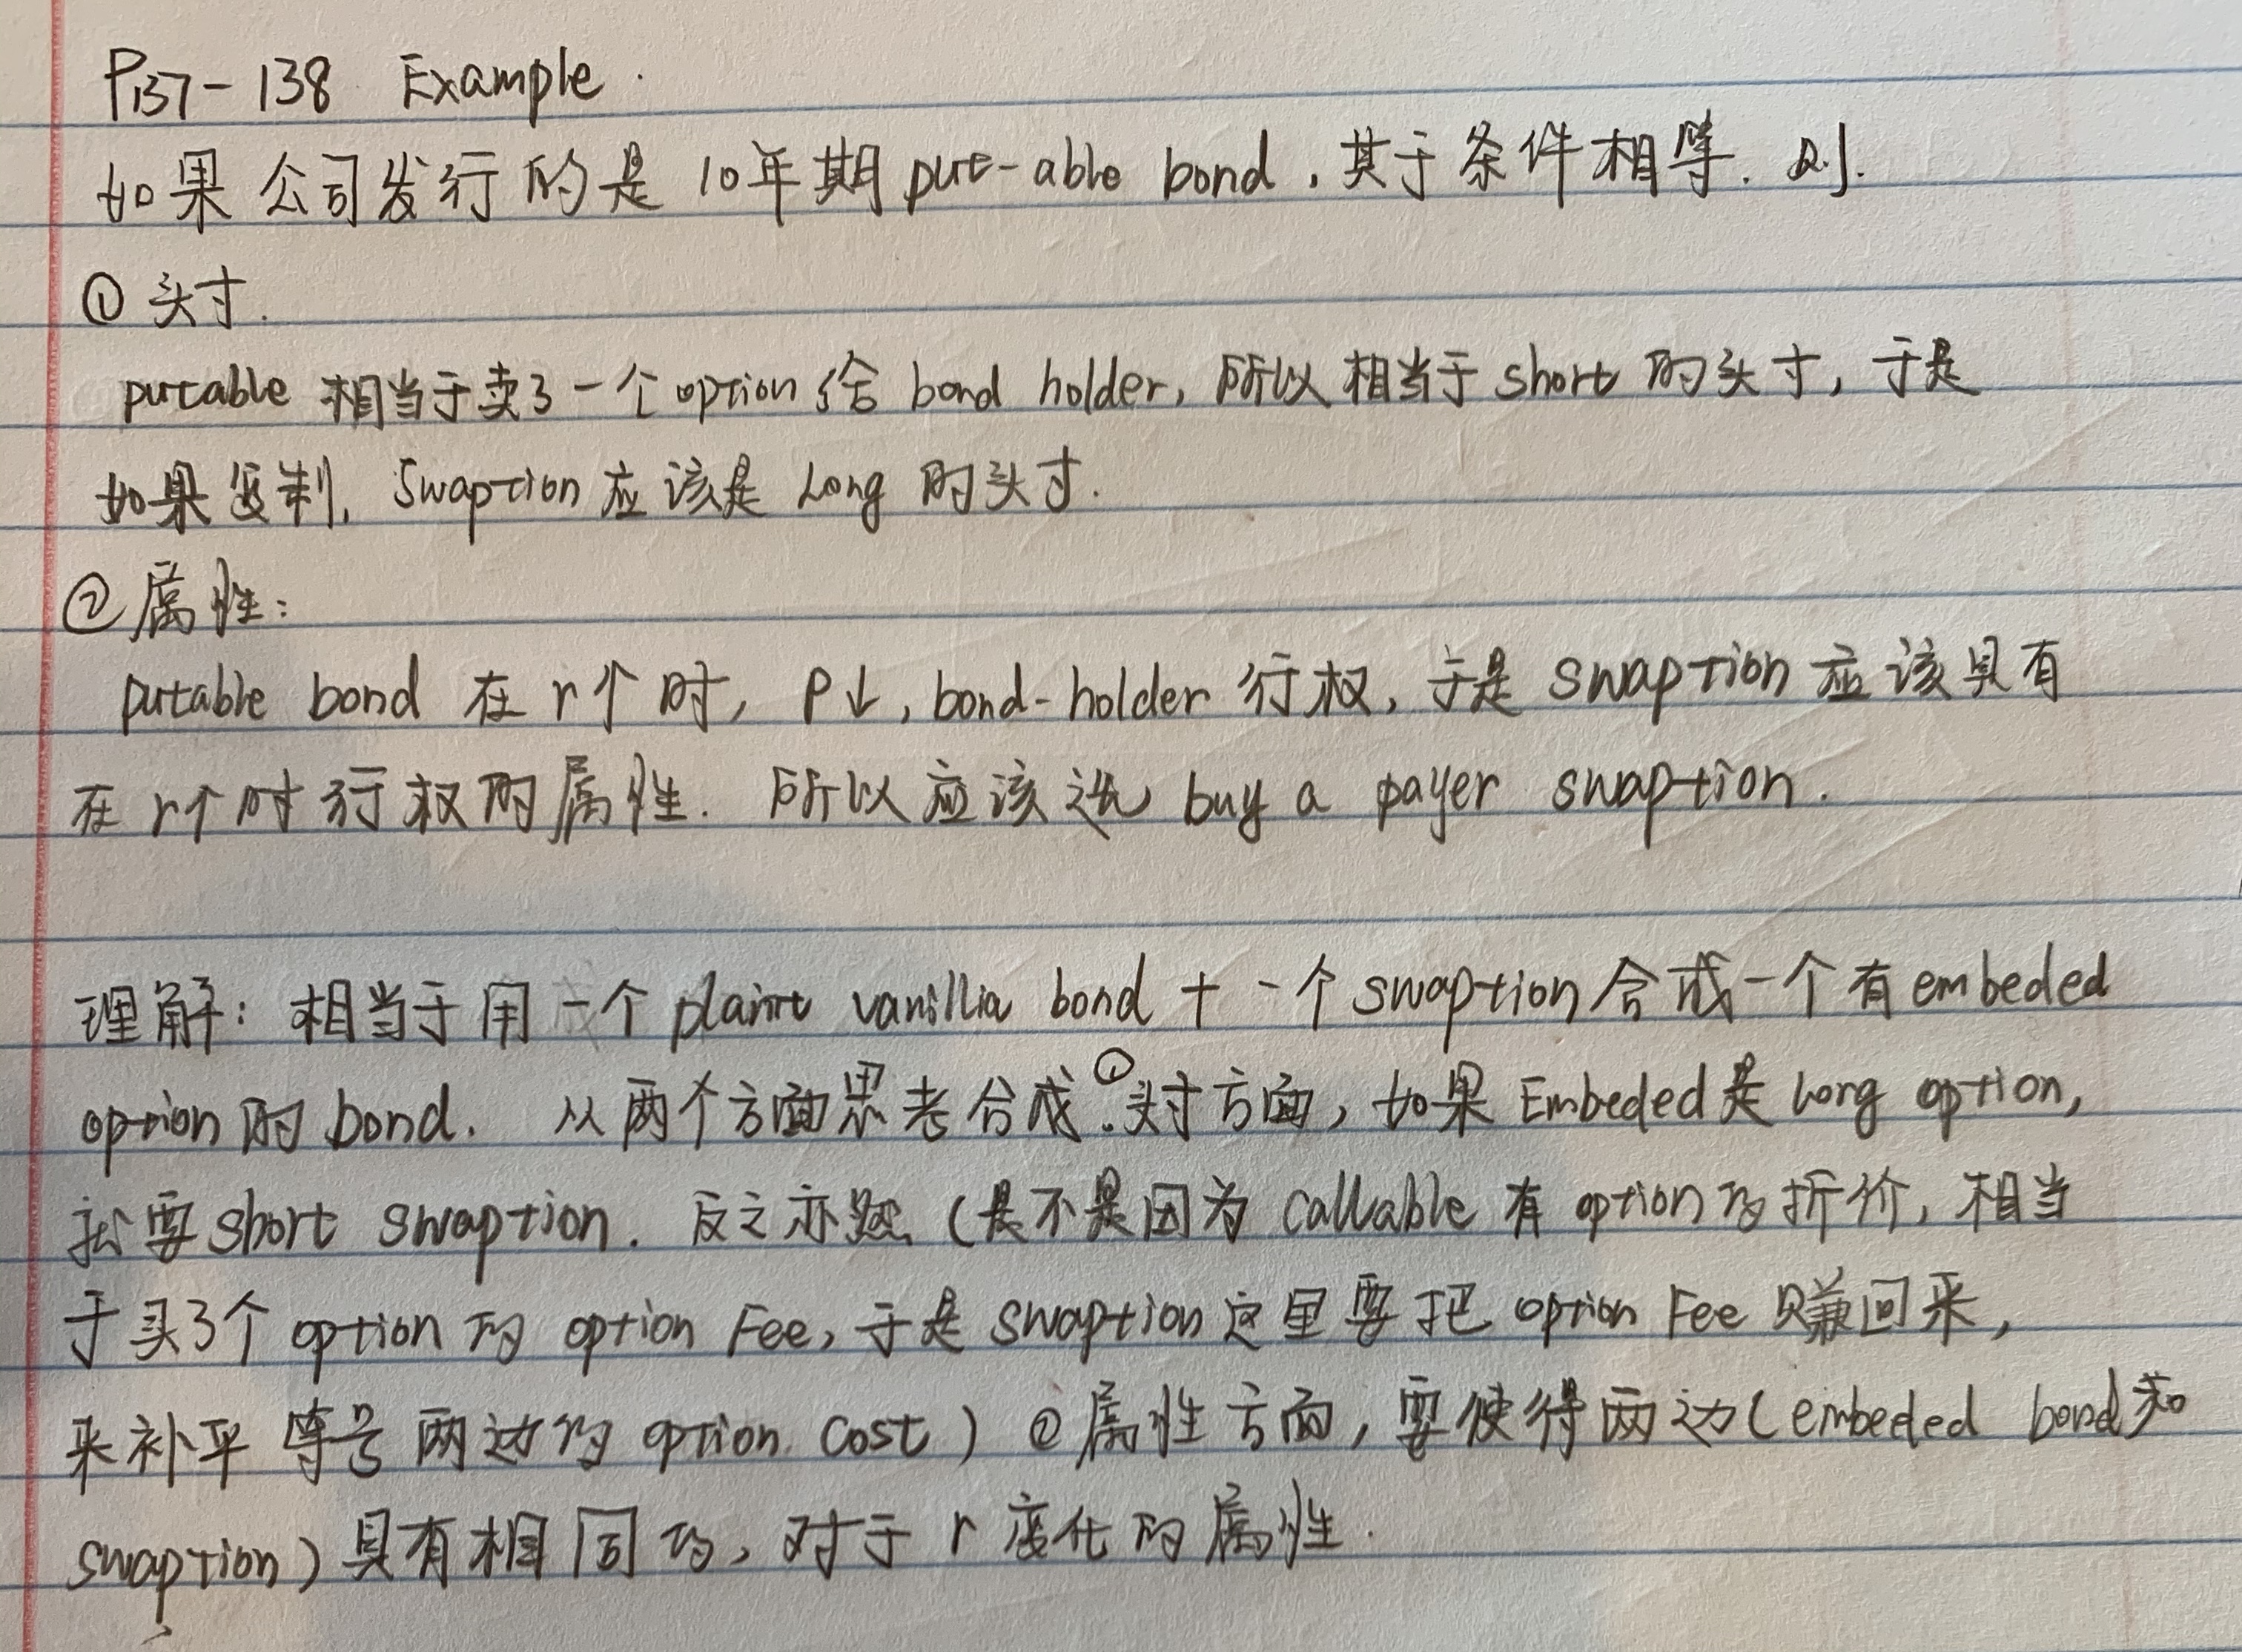 P137-138 Example.
如果公司发行的是10年期put-able bond,其于条件相等.则.
① 头寸.
putable 相当于卖了一个option给 bond holder, 所以相当于short 的头寸, 于是
如果复制, Swaption 应该是 Long 的头寸.
② 属性:
putable bond 在 r↑时, P↓, bond-holder 行权, 于是 swaption 应该具有
在 r↑时行权的属性. 所以应该选 buy a payer swaption.
理解: 相当于用一个 plaint vanillia bond + 一个 swaption 合成一个有 embeded
option 的 bond. 从两个方面思考合成.①头寸方面, 如果 Embeded 是 long option,
就要 short swaption. 反之亦然 (是不是因为 callable 有 option 的折价, 相当
于买了个 option 的 option Fee, 于是 swaption 这里要把 option Fee 赚回来,
来补平等号两边的 option cost ) ② 属性方面, 要使得两边 ( embeded bond 和
swaption ) 具有相同的, 对于 r 变化的属性.